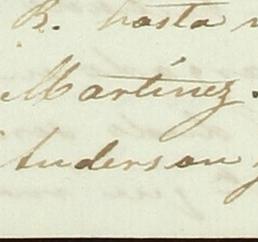 B. hasta
Martinez.
Anderson y